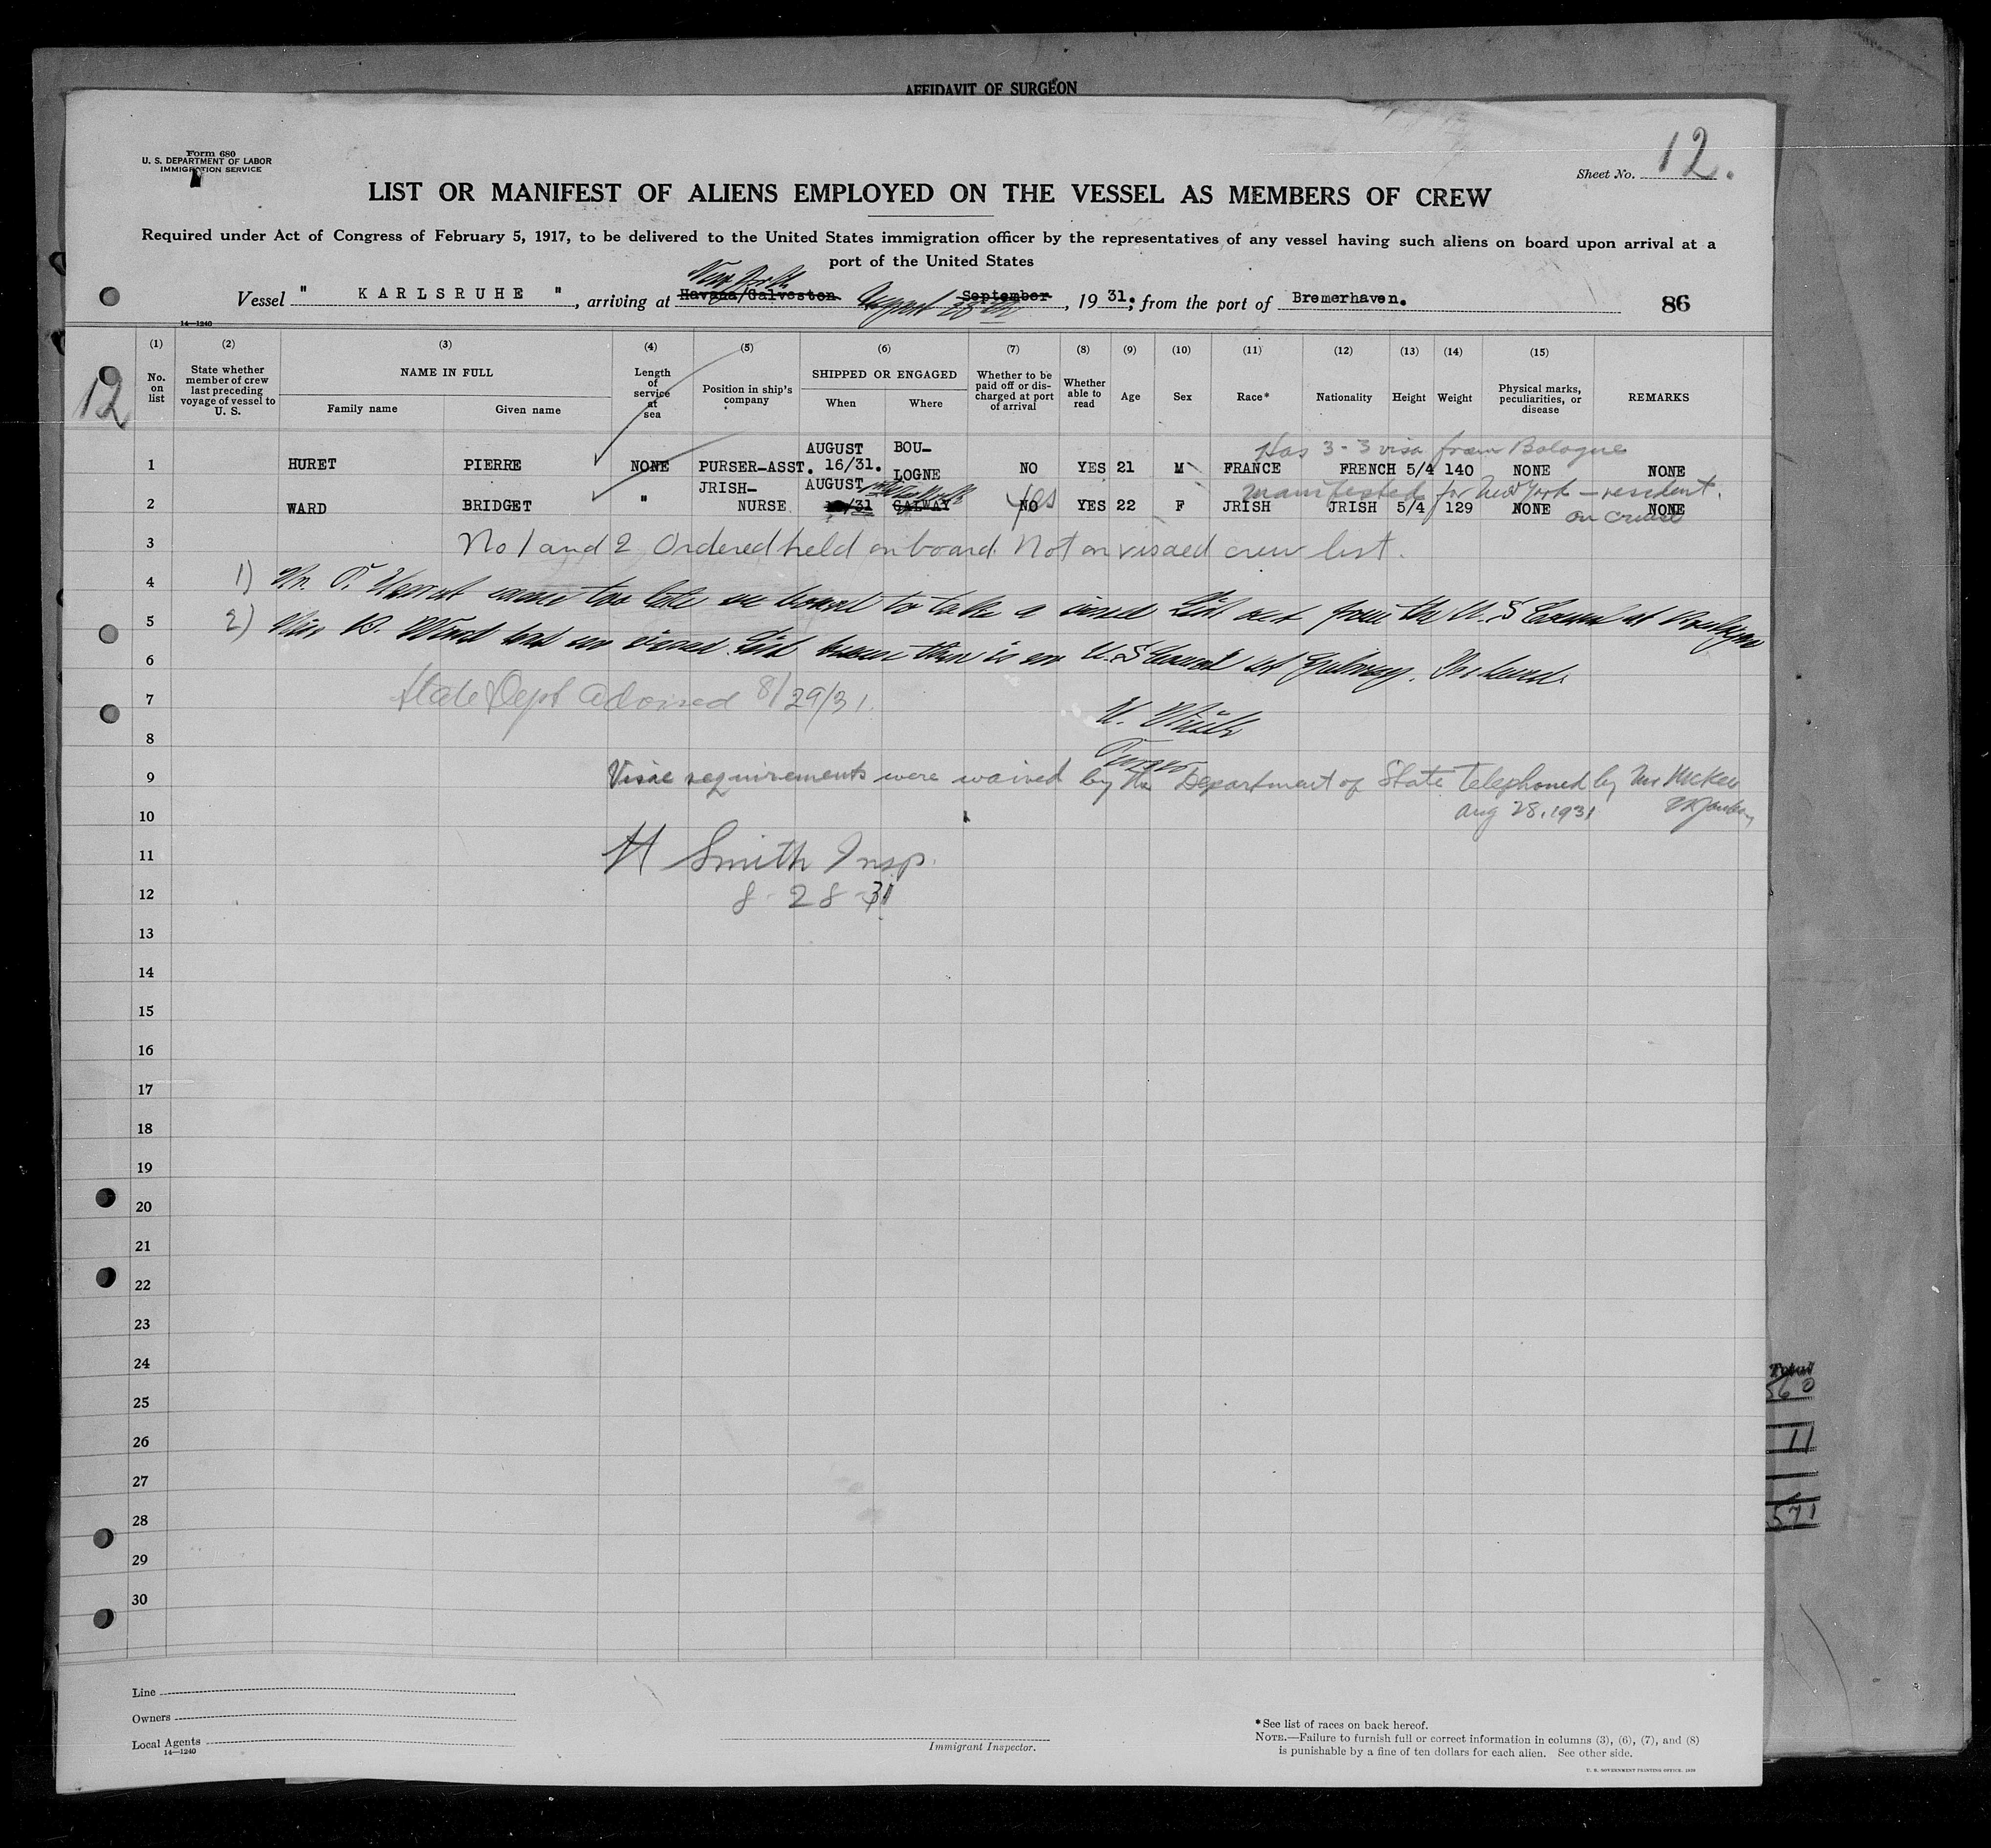 AFFIDAVIT OF SURGEON
Form 680
U. S. DEPARTMENT OF LABOR
IMMIGRATION SERVICE
Sheet No. 12.
LIST OR MANIFEST OF ALIENS EMPLOYED ON THE VESSEL AS MEMBERS OF CREW
Required under Act of Congress of February 5, 1917, to be delivered to the United States immigration officer by the representatives of any vessel having such aliens on board upon arrival at a
port of the United States
New York
Vessel " KARLSRUHE ", arriving at Havana/Galveston August September, 1931; from the port of Bremerhaven.
86
14—1240
12
(1) (2) (3) (4) (5) (6) (7) (8) (9) (10) (11) (12) (13) (14) (15)
No. on list
State whether member of crew last preceding voyage of vessel to U. S.
NAME IN FULL
Family name Given name
Length of service at sea
Position in ship's company
SHIPPED OR ENGAGED
When Where
Whether to be paid off or discharged at port of arrival
Whether able to read
Age
Sex
Race*
Nationality
Height
Weight
Physical marks, peculiarities, or disease
REMARKS
Has 3-3 visa from Bologne
1 HURET PIERRE NONE PURSER-ASST. AUGUST 16/31. BOU-LOGNE NO YES 21 M FRANCE FRENCH 5/4 140 NONE NONE
manifested for New York — resident.
2 WARD BRIDGET " JRISH-NURSE AUGUST /31 GALWAY NO yes YES 22 F JRISH JRISH 5/4 129 NONE NONE
on cruise
3 No 1 and 2 Ordered held on board. Not on visaed crew list.
4 1) Mr. P. came too late on board to take a list out from the U.S. Consul at
5 2) Miss B. Ward had no list because there is no U.S. Consul at Galway.
6
7 State Dept advised 8/29/31.
8 Purser
9 Visae requirements were waived by the Department of State Telephoned by Mr McKee
10 Aug 28, 1931
11 H Smith Insp.
12 8-28-31
13
14
15
16
17
18
19
20
21
22
23
24
25
26
27
28
29
30
Total
560
11
571
Line
Owners
Local Agents
14—1240
Immigrant Inspector.
*See list of races on back hereof.
NOTE.—Failure to furnish full or correct information in columns (3), (6), (7), and (8)
is punishable by a fine of ten dollars for each alien. See other side.
U. S. GOVERNMENT PRINTING OFFICE. 1930